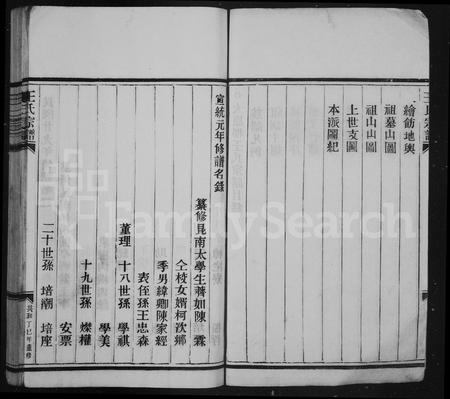 王氏宗譜
繪飭地輿
祖墓山圖
祖山山圖
上世支圖
本派圖紀
宣統元年修譜名錄
纂修邑南太學生
著如陳霖
仝校女婿柯次鄉
季男緯卿陳家經
表侄孫王忠森
董理 十八世孫 學祺
學美
十九世孫 燦權
安票
二十世孫 培潮 培座
王氏宗譜
民國丁巳年重修
FamilySearch